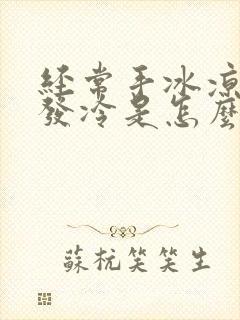 經常手冰涼
發冷是怎麼
蘇杭笑笑生